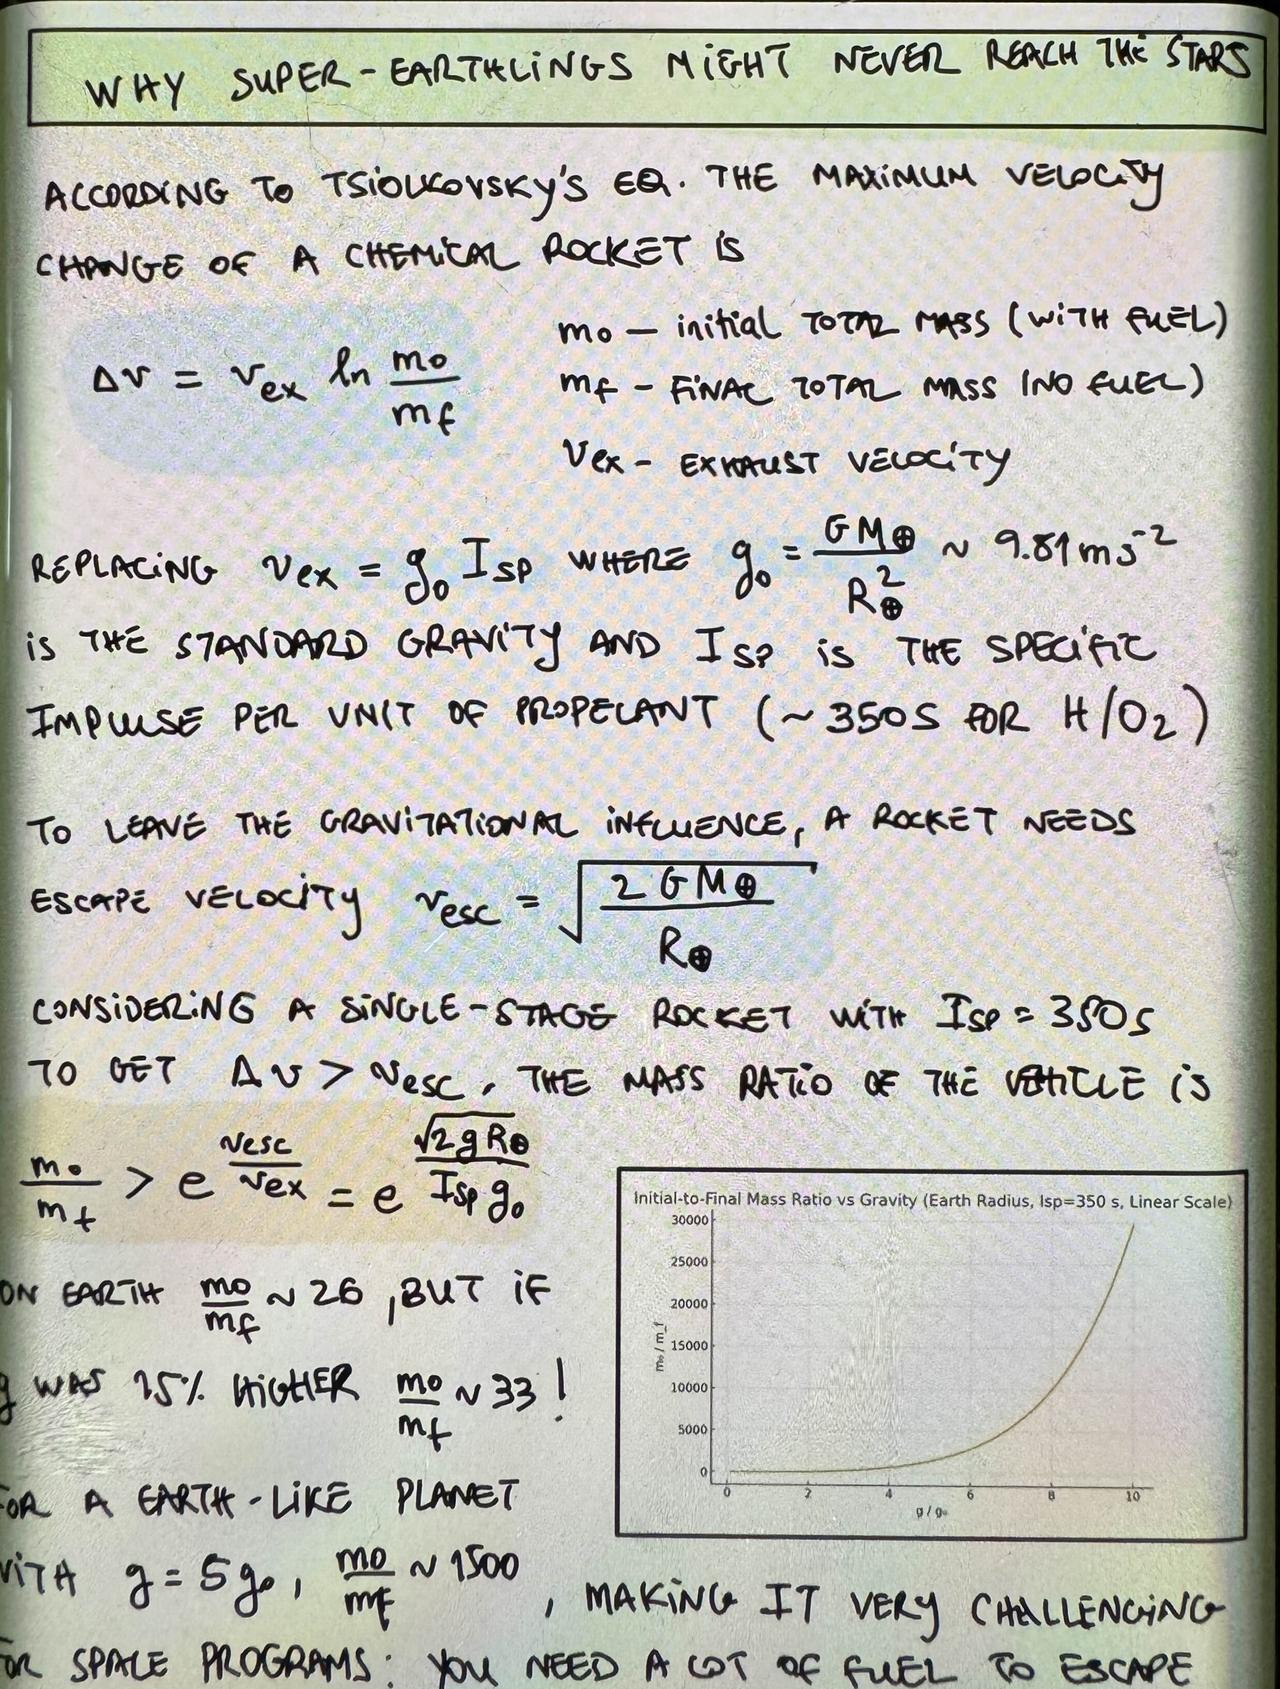 WHY SUPER-EARTHLINGS MIGHT NEVER REACH THE STARS
ACCORDING TO TSIOLKOVSKY'S EQ. THE MAXIMUM VELOCITY
CHANGE OF A CHEMICAL ROCKET IS
Δv = vex ln m0/mf
m0 – initial TOTAL MASS (WITH FUEL)
mf – FINAL TOTAL MASS (NO FUEL)
Vex – EXHAUST VELOCITY
REPLACING vex = g0 ISP WHERE g0 = GM⊕/R⊕² ~ 9.81 ms⁻²
IS THE STANDARD GRAVITY AND ISP IS THE SPECIFIC
IMPULSE PER UNIT OF PROPELANT (~350S FOR H/O2)
TO LEAVE THE GRAVITATIONAL INFLUENCE, A ROCKET NEEDS
ESCAPE VELOCITY vesc = √(2GM⊕/R⊕)
CONSIDERING A SINGLE-STAGE ROCKET WITH ISP = 350s
TO GET Δv > vesc, THE MASS RATIO OF THE VEHICLE IS
m0/mf > e^(vesc/vex) = e^(√(2gR⊕)/(Isp g0))
Initial-to-Final Mass Ratio vs Gravity (Earth Radius, Isp=350 s, Linear Scale)
30000
25000
20000
15000
10000
5000
0
m₀ / m_f
0 2 4 6 8 10
g / g₀
ON EARTH m0/mf ~ 26, BUT IF
g WAS 15% HIGHER m0/mf ~ 33!
FOR A EARTH-LIKE PLANET
WITH g = 5g0, m0/mf ~ 1500, MAKING IT VERY CHALLENGING
FOR SPACE PROGRAMS: YOU NEED A LOT OF FUEL TO ESCAPE